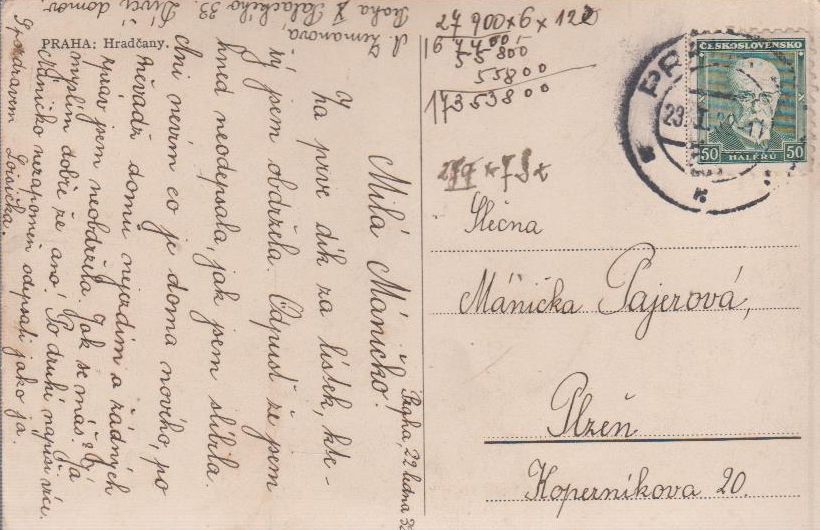 Praha, 22 ledna 32
Milá Máničko!
Za prvé dík za lístek, kte-
rý jsem obdržela. Odpusť že jsem
hned neodepsala, jak jsem slíbila.
Ani nevím co je doma nového, po
něvadž domů nejezdím a žádných
zpráv jsem neobdržela. Jak se máš? Já
myslím dobře že ano! Po druhé napíši více.
Máničko nezapomeň odepsati jako já.
S pozdravem Boženka.
Zemanová,
Praha X Palackého 33.
Dívčí domov.
PRAHA: Hradčany.
27 900 × 6 × 122
55 800
55800
17353800
Slečna
Mánička Pajerová,
Plzeň
Koperníkova 20.
ČESKOSLOVENSKO
50 HALÉŘŮ 50